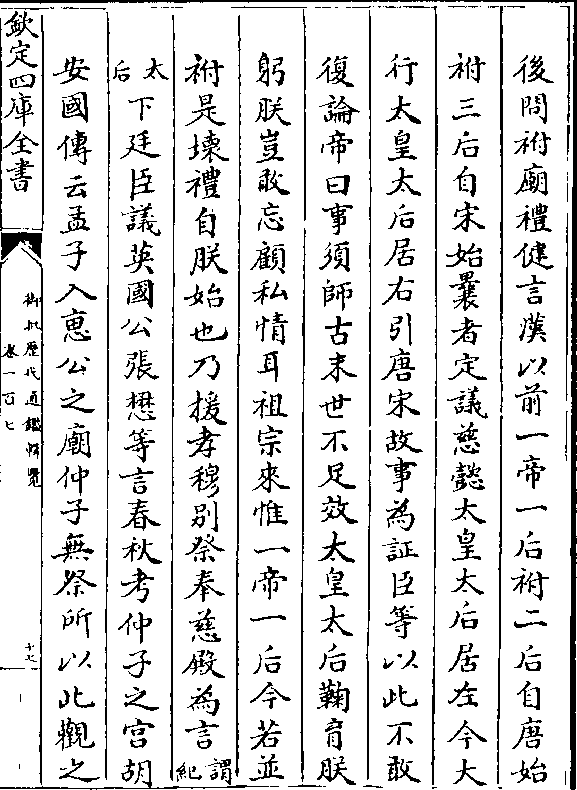 後問祔廟禮健言漢以前一帝一后祔二后自唐始
祔三后自宋始曩者定議慈懿太皇太后居左今大
行太皇太后居右引唐宋故事為証臣等以此不敢
復論帝曰事須師古末世不足效太皇太后鞠育朕
躬朕豈敢忘顧私情耳祖宗來惟一帝一后今若並
祔是壊禮自朕始也乃援孝穆别祭奉慈殿為言謂紀
太后下廷臣議英國公張懋等言春秋考仲子之宮胡
安國傳云孟子入惠公之廟仲子無祭所以此觀之
欽定四庫全書
御批歷代通鑑輯覽
卷一百七
十七